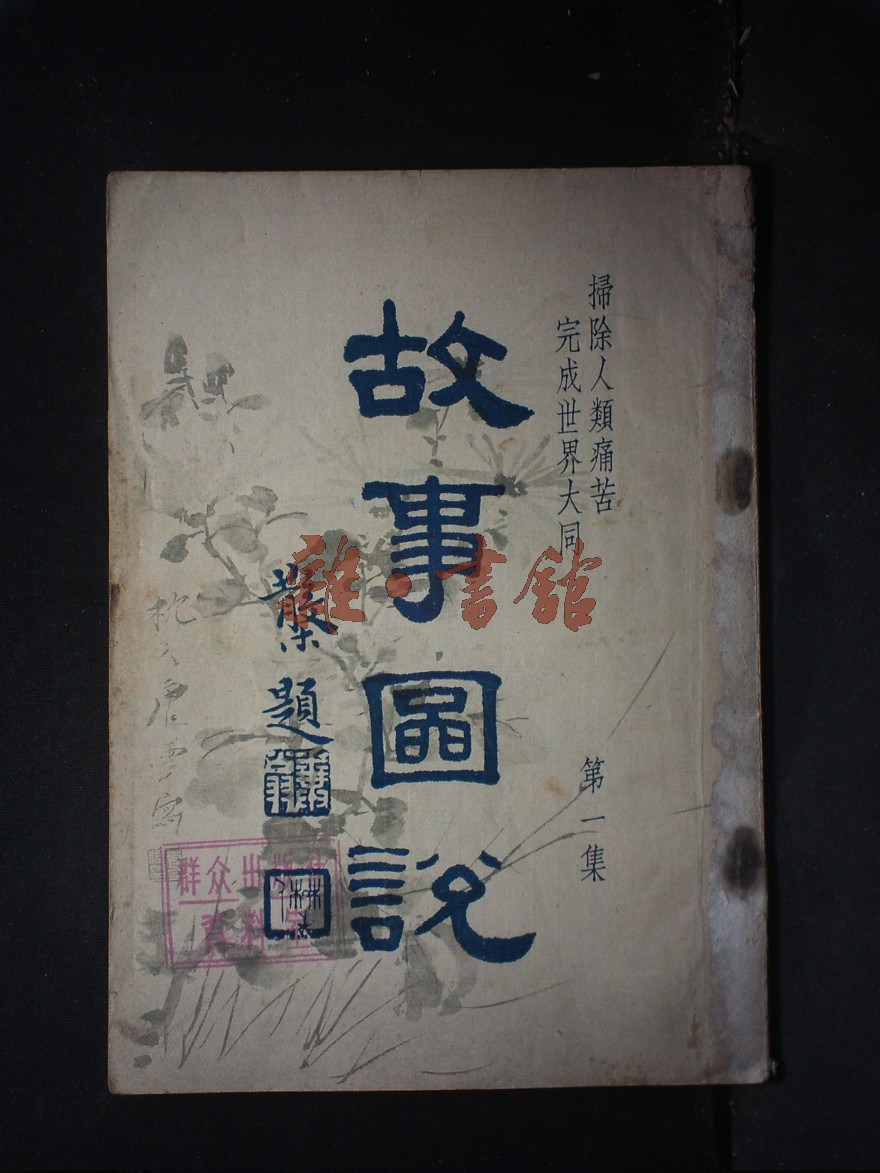 掃除人類痛苦
完成世界大同
故事圖說
第一集
題
雜·書館
群众出版社
資料室